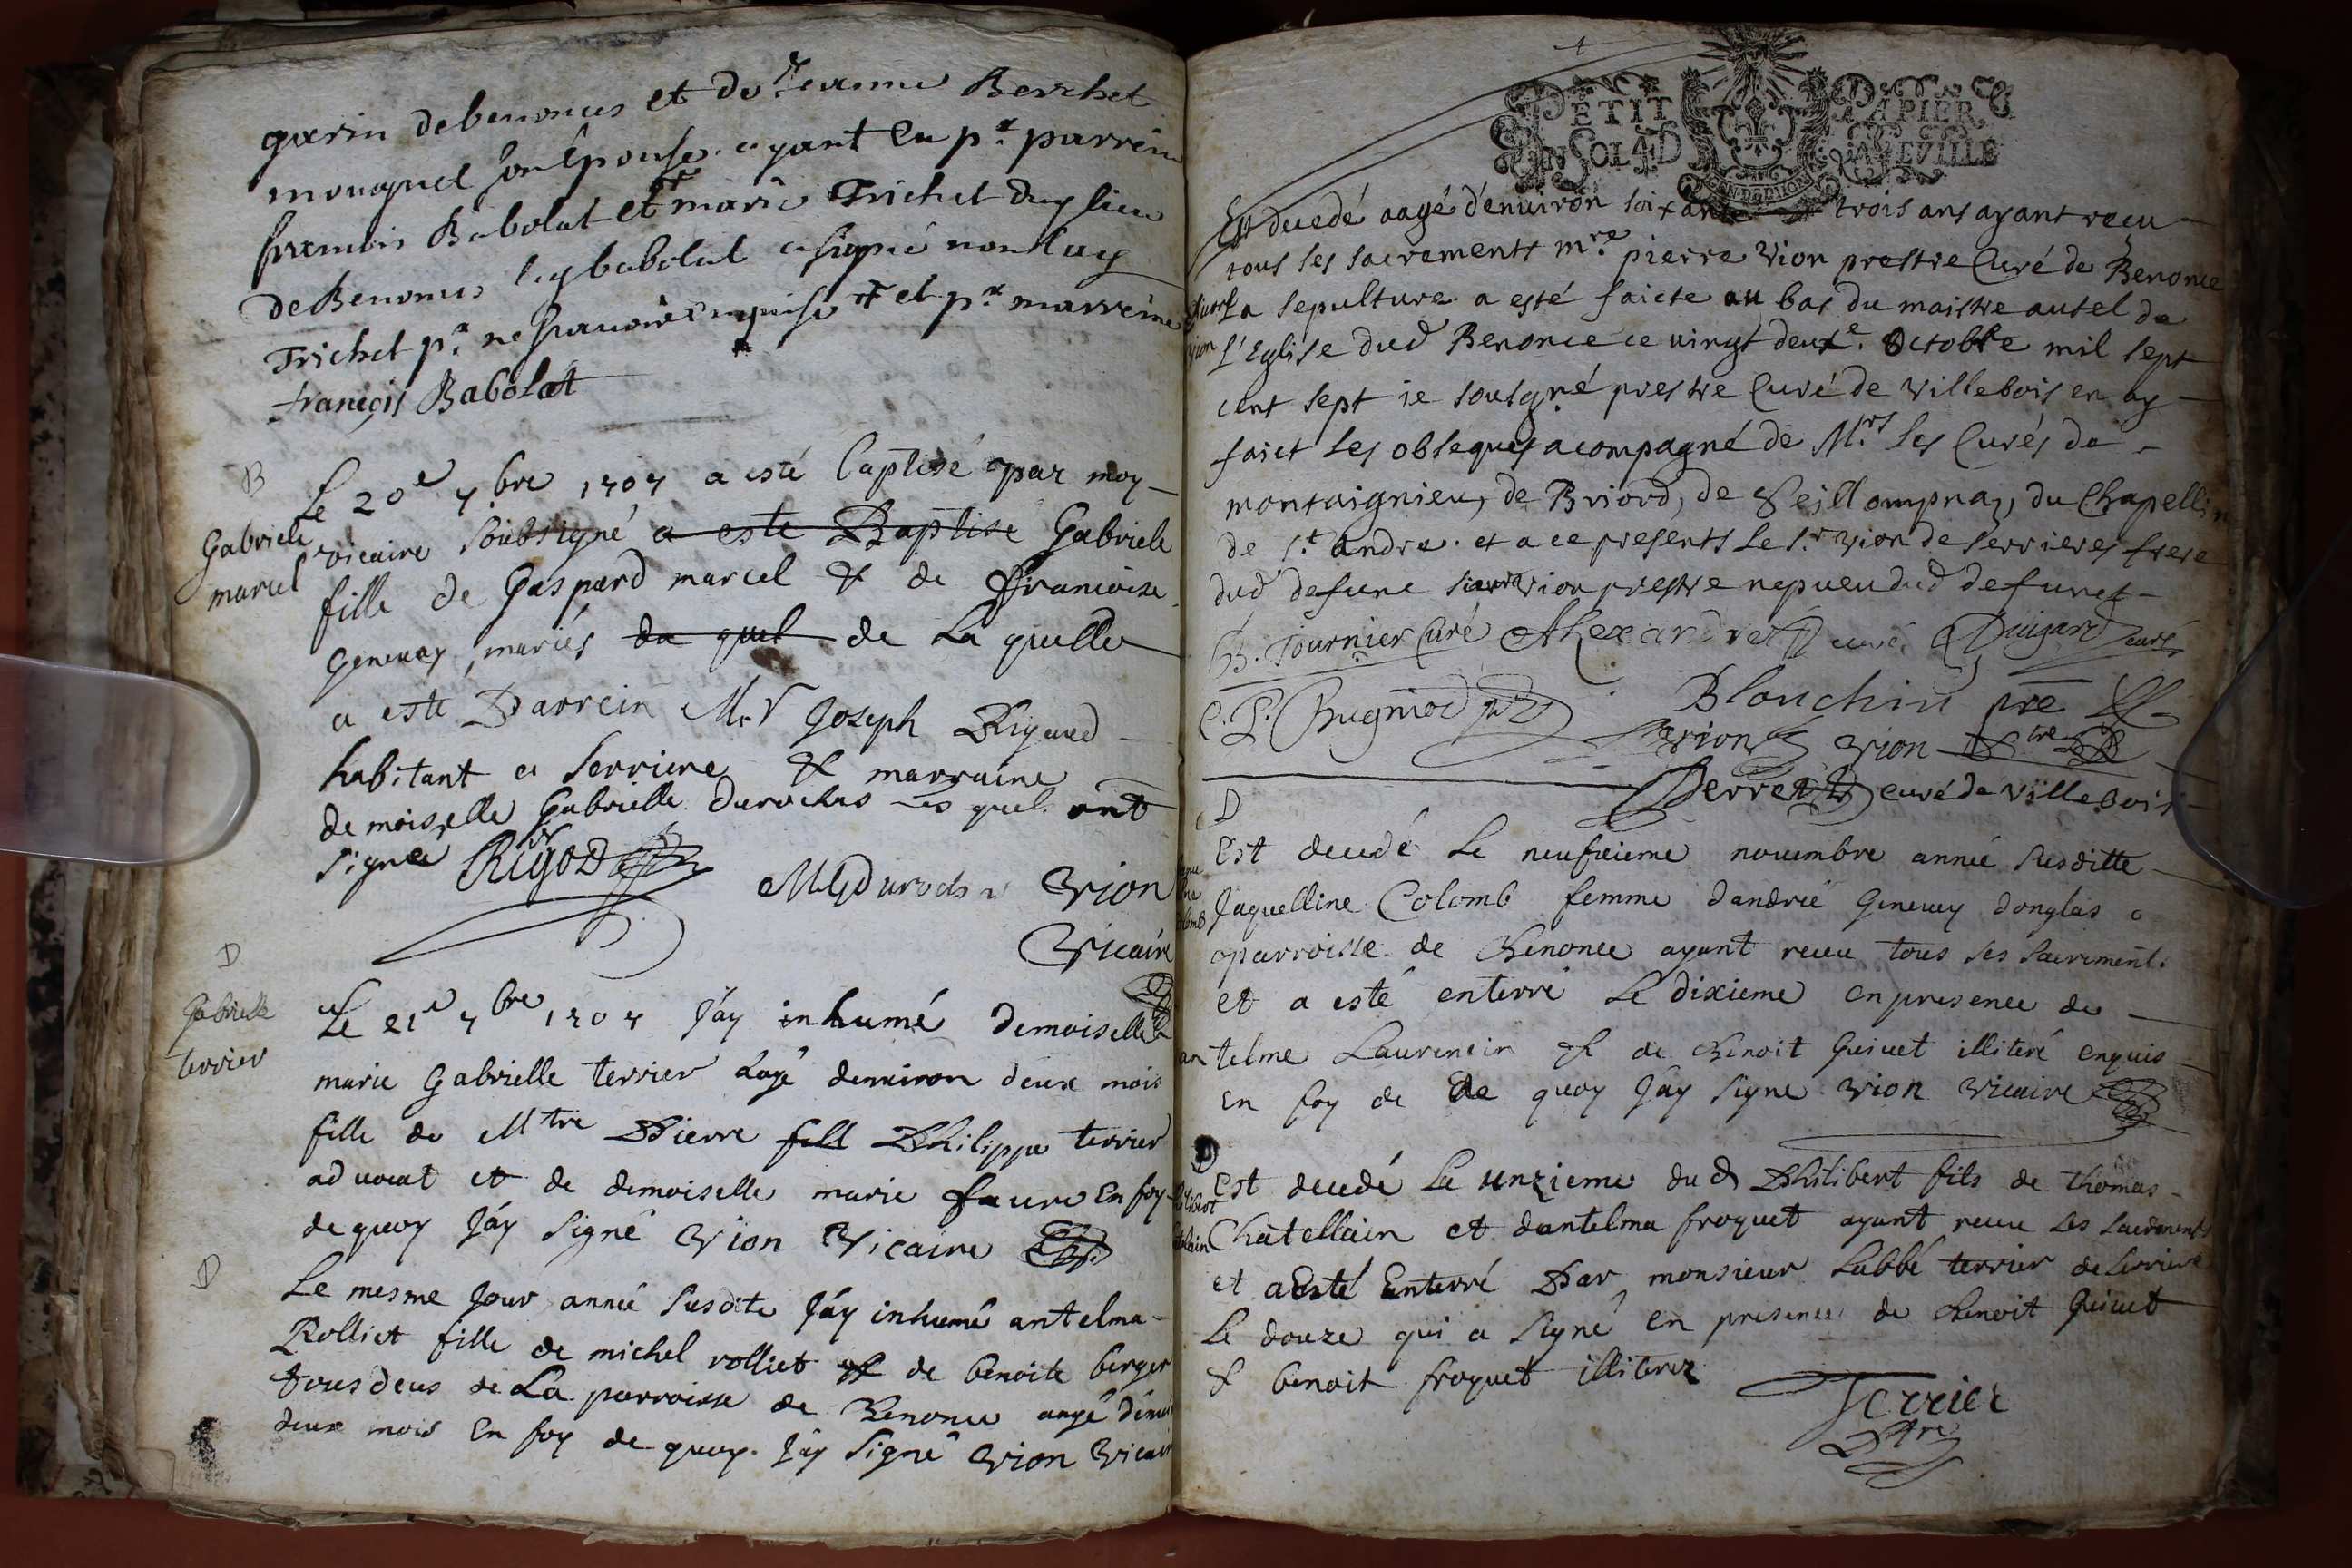 garin de benonces et de Jeanne Berchet
son épouse ayant eu pr parrein
francois Babolat et marie Trichet dud lieu
de Benonces led babolat a signé non lad
Trichet pr ne scavoir enquise et pr marreine
françois Babolat
B
Gabriele
marcel
Le 20e 7bre 1707 a esté baptisé par moy
vicaire soubsigné a este Baptise Gabriele
fille de Gaspard marcel & de francoise
Genevay, mariés du quel de La quelle
a este Parrein Mr Joseph Rigaud
habitant a Serriere & marraine
demoiselle Gabrielle Duroches Les quels ont
signée Rigod
MG Duroche Vion
Vicaire
D
Gabrielle
terrier
Le 21e 7bre 1707 J'ay inhumé Demoiselle
marie Gabrielle terrier aagé denviron deux mois
fille de Mtre Pierre fill Philippe terrier
advocat et de demoiselle marie faure En foy
de quoy J'ay signé Vion Vicaire
D
Le mesme Jour année susdite J'ay inhumé antelma
Rolliet fille de michel rolliet & de benoite berger
tous deus de La parroisse de Benonce aagé d'envi
deux mois En foy de quoy J'ay signé Vion Vicair
PETIT PAPIER
UN SOL 4 D LA FEUILLE
Est decedé aagé d'enuiron soixante trois ans ayant recu
tous les sacrements mre pierre Vion prestre Curé de Benonce
La sepulture a esté faicte au bas du maistre autel de
vion
l'Eglise dud Benonce ce vingt deuxe Octobre mil sept
cent sept ie sousigné prestre Curé de Villebois en ay
faict les obseques acompagné de Mrs les Curés de
montaignieu, de Briord, de Seillompnaz, du Chapellin
de St andré et a ce presents le Sr vion de serrieres frere
dud defunc vion prestre nepueu dud defunct
B. Tournier Curé Alexandre curé Puigard curé
C. P. Bugniod
Blonchin pre
Vion Vion ptre
Perret curé de Villebois
D
Est decedé Le neufvieme novembre année susditte
Jaquelline Colomb femme d'andrié Genevey donglas
parroisse de Benonce ayant receu tous ses sacrements
et a esté enterré Le dixieme en presence de
antelme Laurencin & de Benoit Guivet illiteré enquis
En foy de de quoy J'ay signe Vion Vicaire
D
Est decedé Le unzieme du d Philibert fils de thomas
Chatellain et dantelma froquet ayant receu les sacrements
et a Esté Enterré Par monsieur Labbé terrier de Serriere
Le douze qui a signé en presence de benoit Guivet
& benoit froquet illiterez
Terrier
Ptre